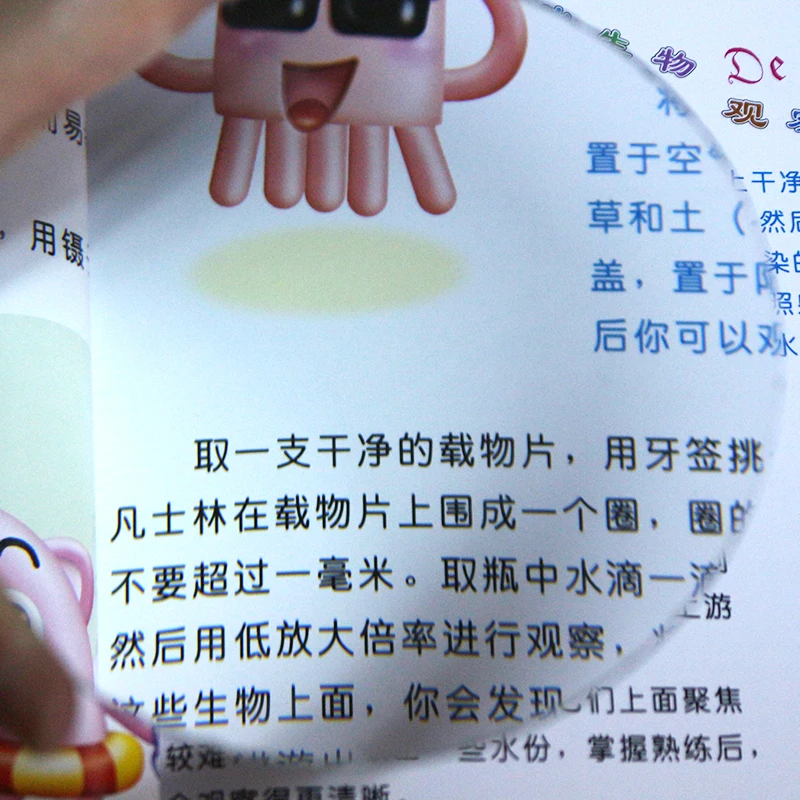 生物
De
观
置于空
上干净
草和土（
然后
盖，置于
染的
后你可以观
水
易
，用镊
取一支干净的载物片，用牙签挑
凡士林在载物片上围成一个圈，圈的
不要超过一毫米。取瓶中水滴一滴
上游
然后用低放大倍率进行观察，
这些生物上面，你会发现
们上面聚焦
较难
些水份，掌握熟练后，
会观察得更清晰。